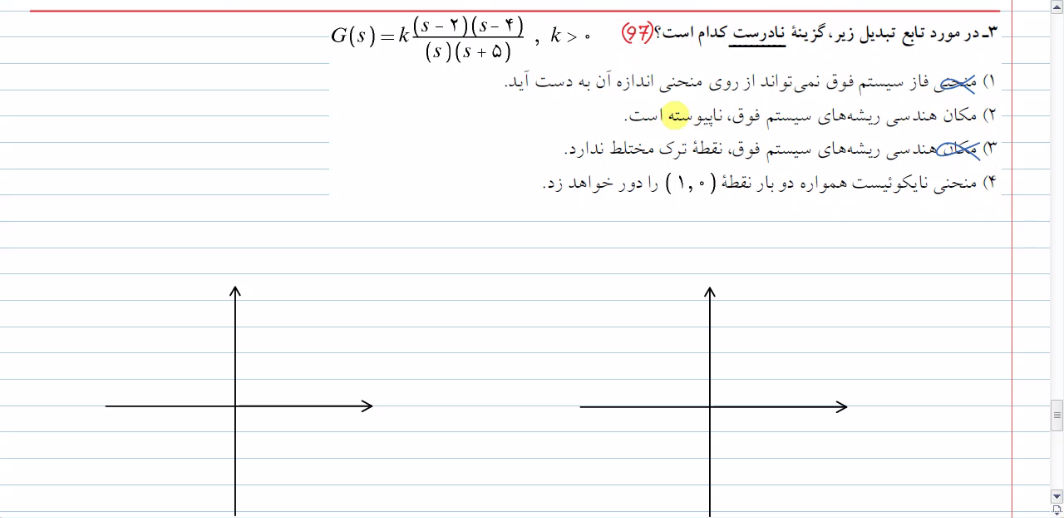 ۳ـ در مورد تابع تبدیل زیر، گزینهٔ نادرست کدام است؟ (97) G(s) = k (s − ۲)(s − ۴) / (s)(s + ۵) , k > ۰
۱) منحنی فاز سیستم فوق نمی‌تواند از روی منحنی اندازه آن به دست آید.
۲) مکان هندسی ریشه‌های سیستم فوق، ناپیوسته است.
۳) مکان هندسی ریشه‌های سیستم فوق، نقطهٔ ترک مختلط ندارد.
۴) منحنی نایکوئیست همواره دو بار نقطهٔ (۱,۰) را دور خواهد زد.